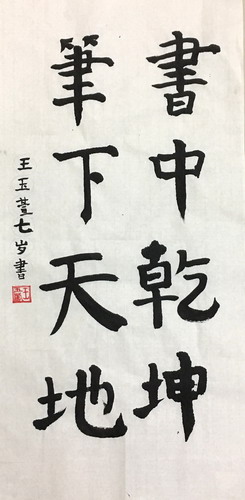 書中乾坤
筆下天地
王玉萱七岁書